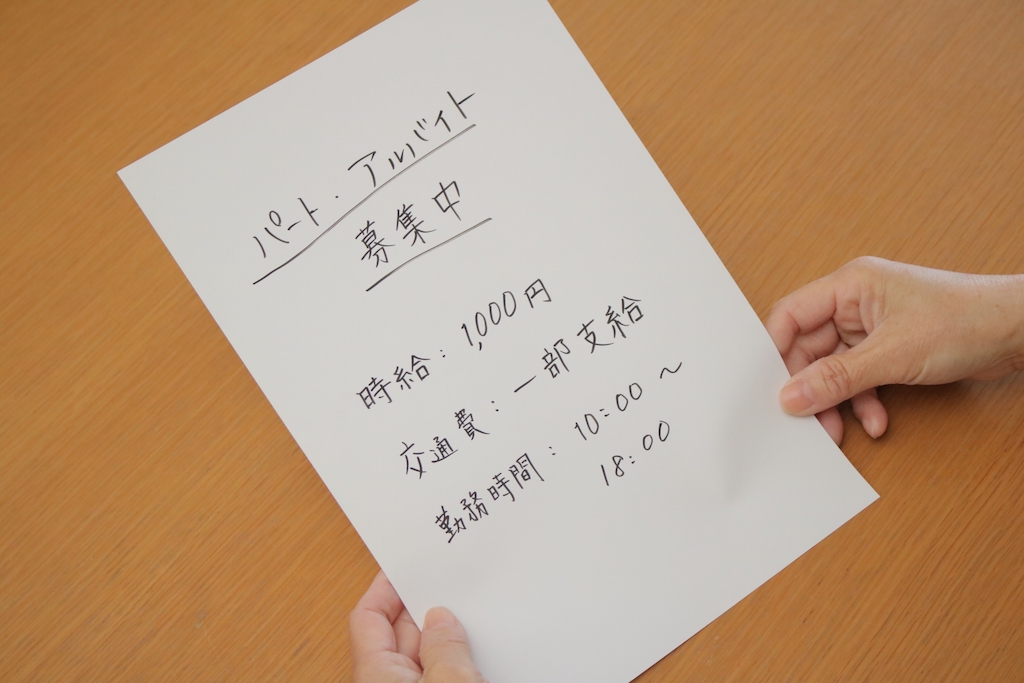 パート・アルバイト
募集中
時給：1,000円
交通費：一部支給
勤務時間：10:00～
18:00